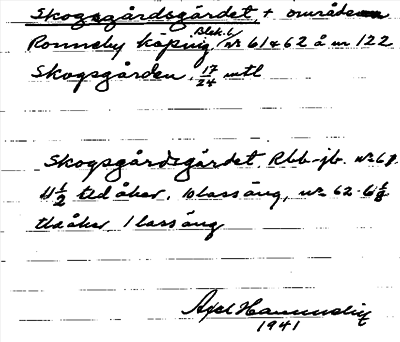 Skogsgårdsgärdet, + område
Ronneby köping, Blek. l. nr 61 & 62 å nr 122
Skogsgården, 17/24 mtl
Skogsgårdsgärdet. Rbb-jb. nr 61
11 1/2 tld åker, 10 lass äng, nr 62 - 6 1/8
tld åker 1 lass äng
Axel
1941